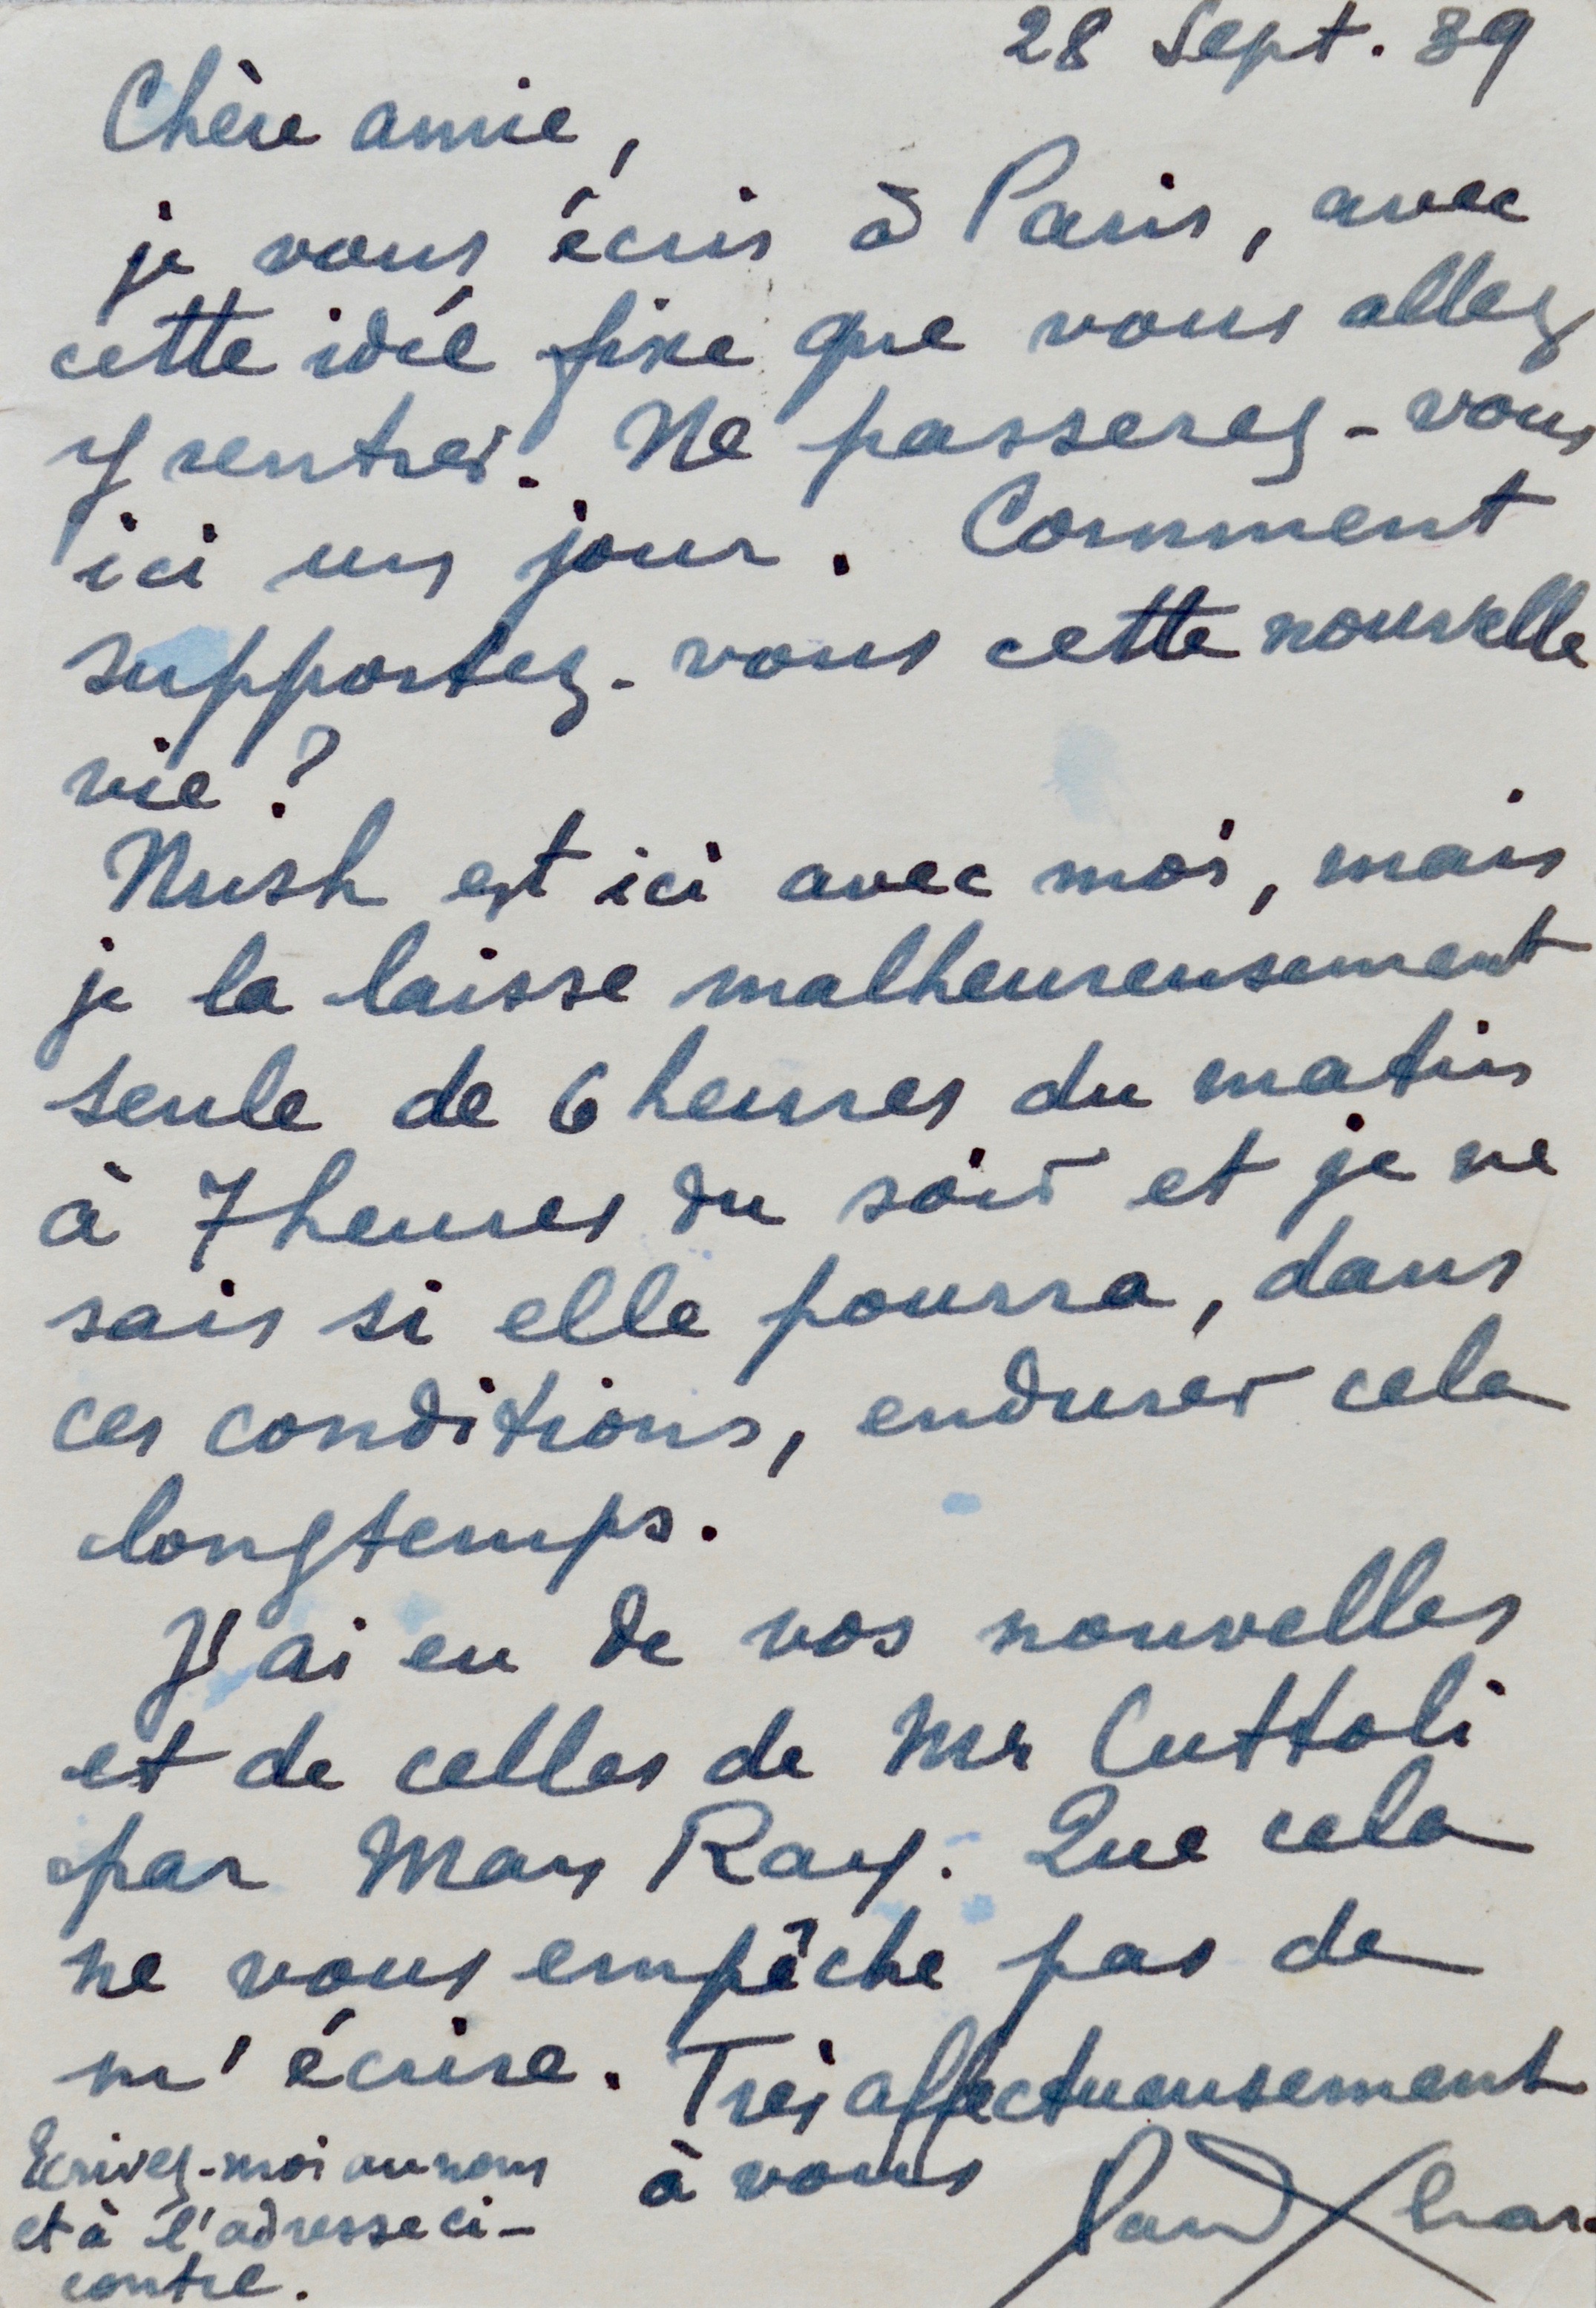 28 Sept. 39
Chère amie,
je vous écris à Paris, avec
cette idée fixe que vous allez
y rentrer. Ne passerez-vous
ici un jour. Comment
supportez-vous cette nouvelle
vie ?
Nush est ici avec moi, mais
je la laisse malheureusement
seule de 6 heures du matin
à 7 heures du soir et je ne
sais si elle pourra, dans
ces conditions, endurer cela
longtemps.
J'ai eu de vos nouvelles
et de celles de Mr Cuttoli
par Man Ray. Que cela
ne vous empêche pas de
m'écrire. Très affectueusement
à vous
Paul Eluard
Ecrivez-moi au nom
et à l'adresse ci-
contre.